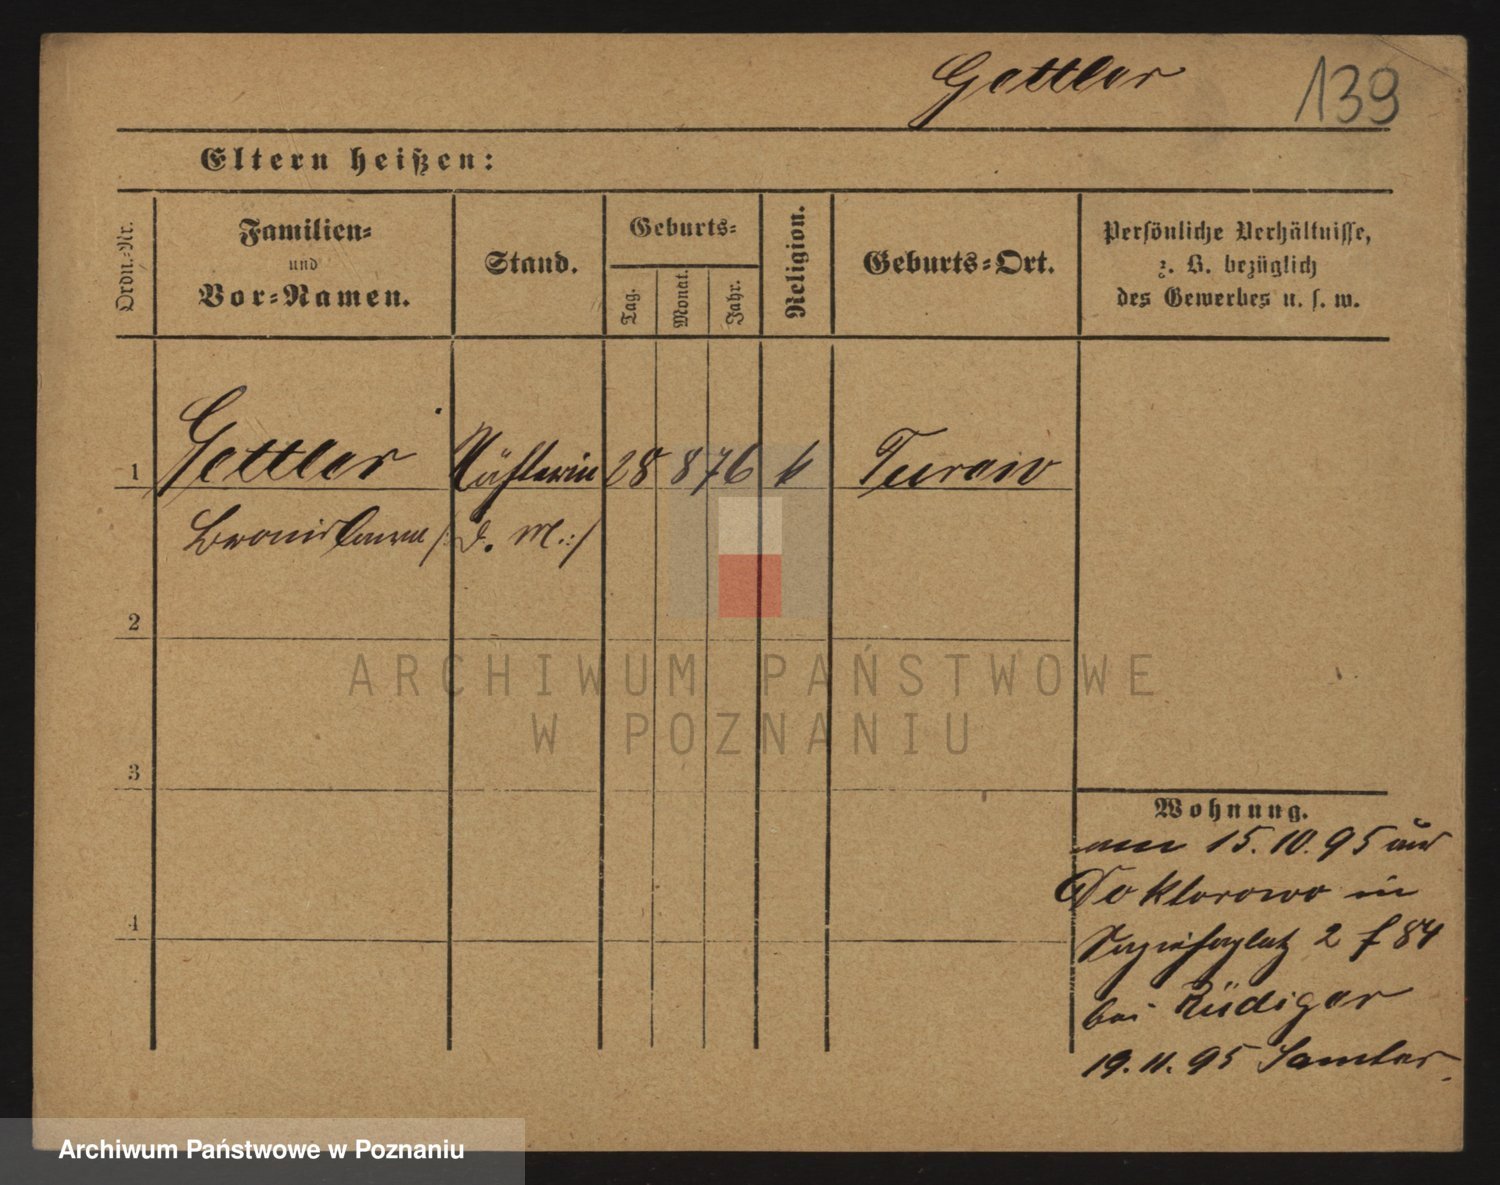 Gettler 139
Eltern heißen:
Ordn.-Nr.
Familien-
und
Vor-Namen.
Stand.
Geburts-
Tag.
Monat.
Jahr.
Religion.
Geburts-Ort.
Persönliche Verhältnisse,
z. B. bezüglich
des Gewerbes u. s. w.
1 Gettler Nähterin 28 8 76 k Turowo
Bronislawa /: d. M. :/
2
3
4
Wohnung.
am 15.10.95 aus
Doktorowo in
Sapiehaplatz 2 f 84
bei Rüdiger
19.11.95 Samter.
ARCHIWUM PAŃSTWOWE
W POZNANIU
Archiwum Państwowe w Poznaniu